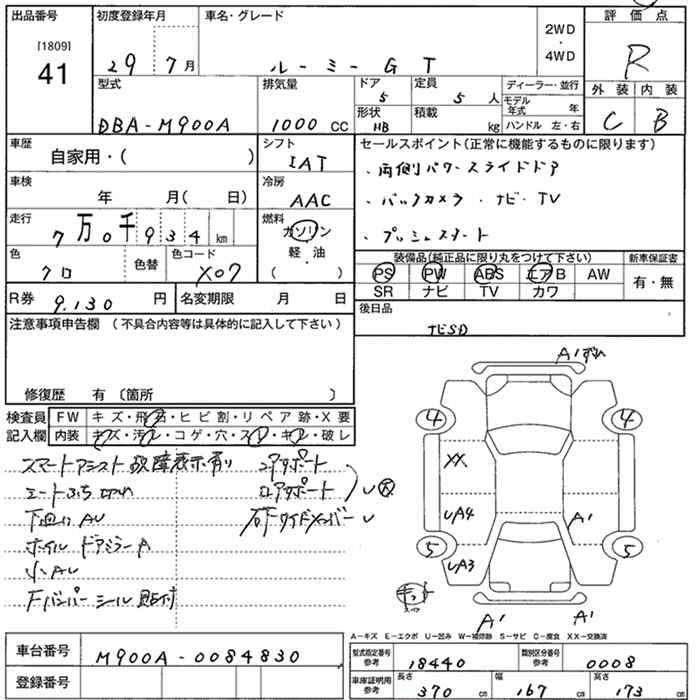 出品番号 初度登録年月 車名・グレード 2WD ・ 4WD 評価点
[1809]
41 29 7月 ルーミー GT R
型式 排気量 ドア 5 定員 5人 ディーラー・並行 外装 内装
モデル年式 年
DBA-M900A 1000 CC 形状 HB 積載 kg ハンドル 左・右 C B
車歴 シフト セールスポイント(正常に機能するものに限ります)
自家用・( ) IAT ・両側パワースライドドア
車検 冷房
年 月( 日) AAC ・バックカメラ・ナビ・TV
走行 燃料
7万0千934km ガソリン ・プッシュスタート
軽・油
( ・ )
色 色替 色コード 装備品(純正品に限り丸をつけて下さい) 新車保証書
クロ X07 PS PW ABS エアB AW 有・無
SR ナビ TV カワ
R券 9.130円 名変期限 月 日 後日品
注意事項申告欄 (不具合内容等は具体的に記入して下さい) ナビSD
修復歴 有 〔箇所 〕
検査員 FW キズ・飛石・ヒビ割・リペア跡・X要
記入欄 内装 キズ・汚レ・コゲ・穴・スレ・キレ・破レ
スマートアシスト故障表示有り コアサポート
シートふち
下回り AU ロアサポート
ホイル ドアミラー A
小AU
Fバンパー シール貼付
A1
4 4
XX
UA4 A1
5 5
UA3
A1 A1
A-キズ E-エクボ U-凹み W-補修跡 S-サビ C-腐食 XX-交換済
車台番号 M900A-0084830
登録番号
型式指定番号 参考 18440 類別区分番号 参考 0008
車庫証明用 参考 長さ 370 cm 幅 167 cm 高さ 173 cm